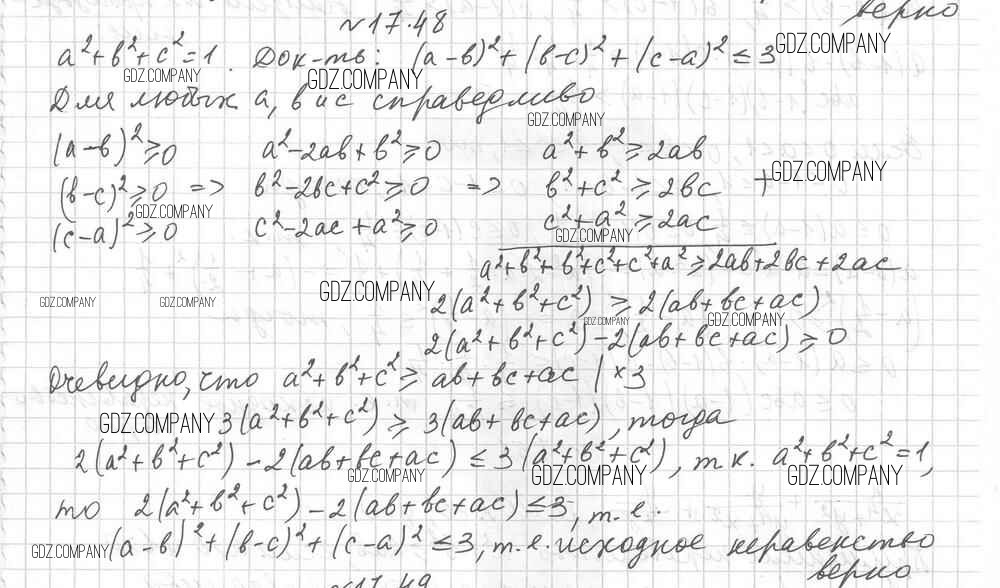 верно
№17.48
a²+b²+c²=1. Док-ть: (a-b)²+(b-c)²+(c-a)² ≤ 3 GDZ.COMPANY
GDZ.COMPANY GDZ.COMPANY
Для любых a, b и c справедливо
GDZ.COMPANY
(a-b)²≥0 a²-2ab+b²≥0 a²+b²≥2ab
(b-c)²≥0 => b²-2bc+c²≥0 => b²+c²≥2bc + GDZ.COMPANY
GDZ.COMPANY
(c-a)²≥0 c²-2ac+a²≥0 c²+a²≥2ac
GDZ.COMPANY
a²+b²+b²+c²+c²+a²≥2ab+2bc+2ac
GDZ.COMPANY GDZ.COMPANY GDZ.COMPANY 2(a²+b²+c²) ≥ 2(ab+bc+ac)
GDZ.COMPANY GDZ.COMPANY
2(a²+b²+c²)-2(ab+bc+ac) ≥ 0
Очевидно, что a²+b²+c² ≥ ab+bc+ac |×3
GDZ.COMPANY 3(a²+b²+c²) ≥ 3(ab+bc+ac), тогда
2(a²+b²+c²)-2(ab+bc+ac) ≤ 3(a²+b²+c²), т.к. a²+b²+c²=1,
GDZ.COMPANY GDZ.COMPANY GDZ.COMPANY
то 2(a²+b²+c²)-2(ab+bc+ac) ≤ 3, т.е.
GDZ.COMPANY (a-b)²+(b-c)²+(c-a)² ≤ 3, т.е. исходное неравенство
верно
№17.49